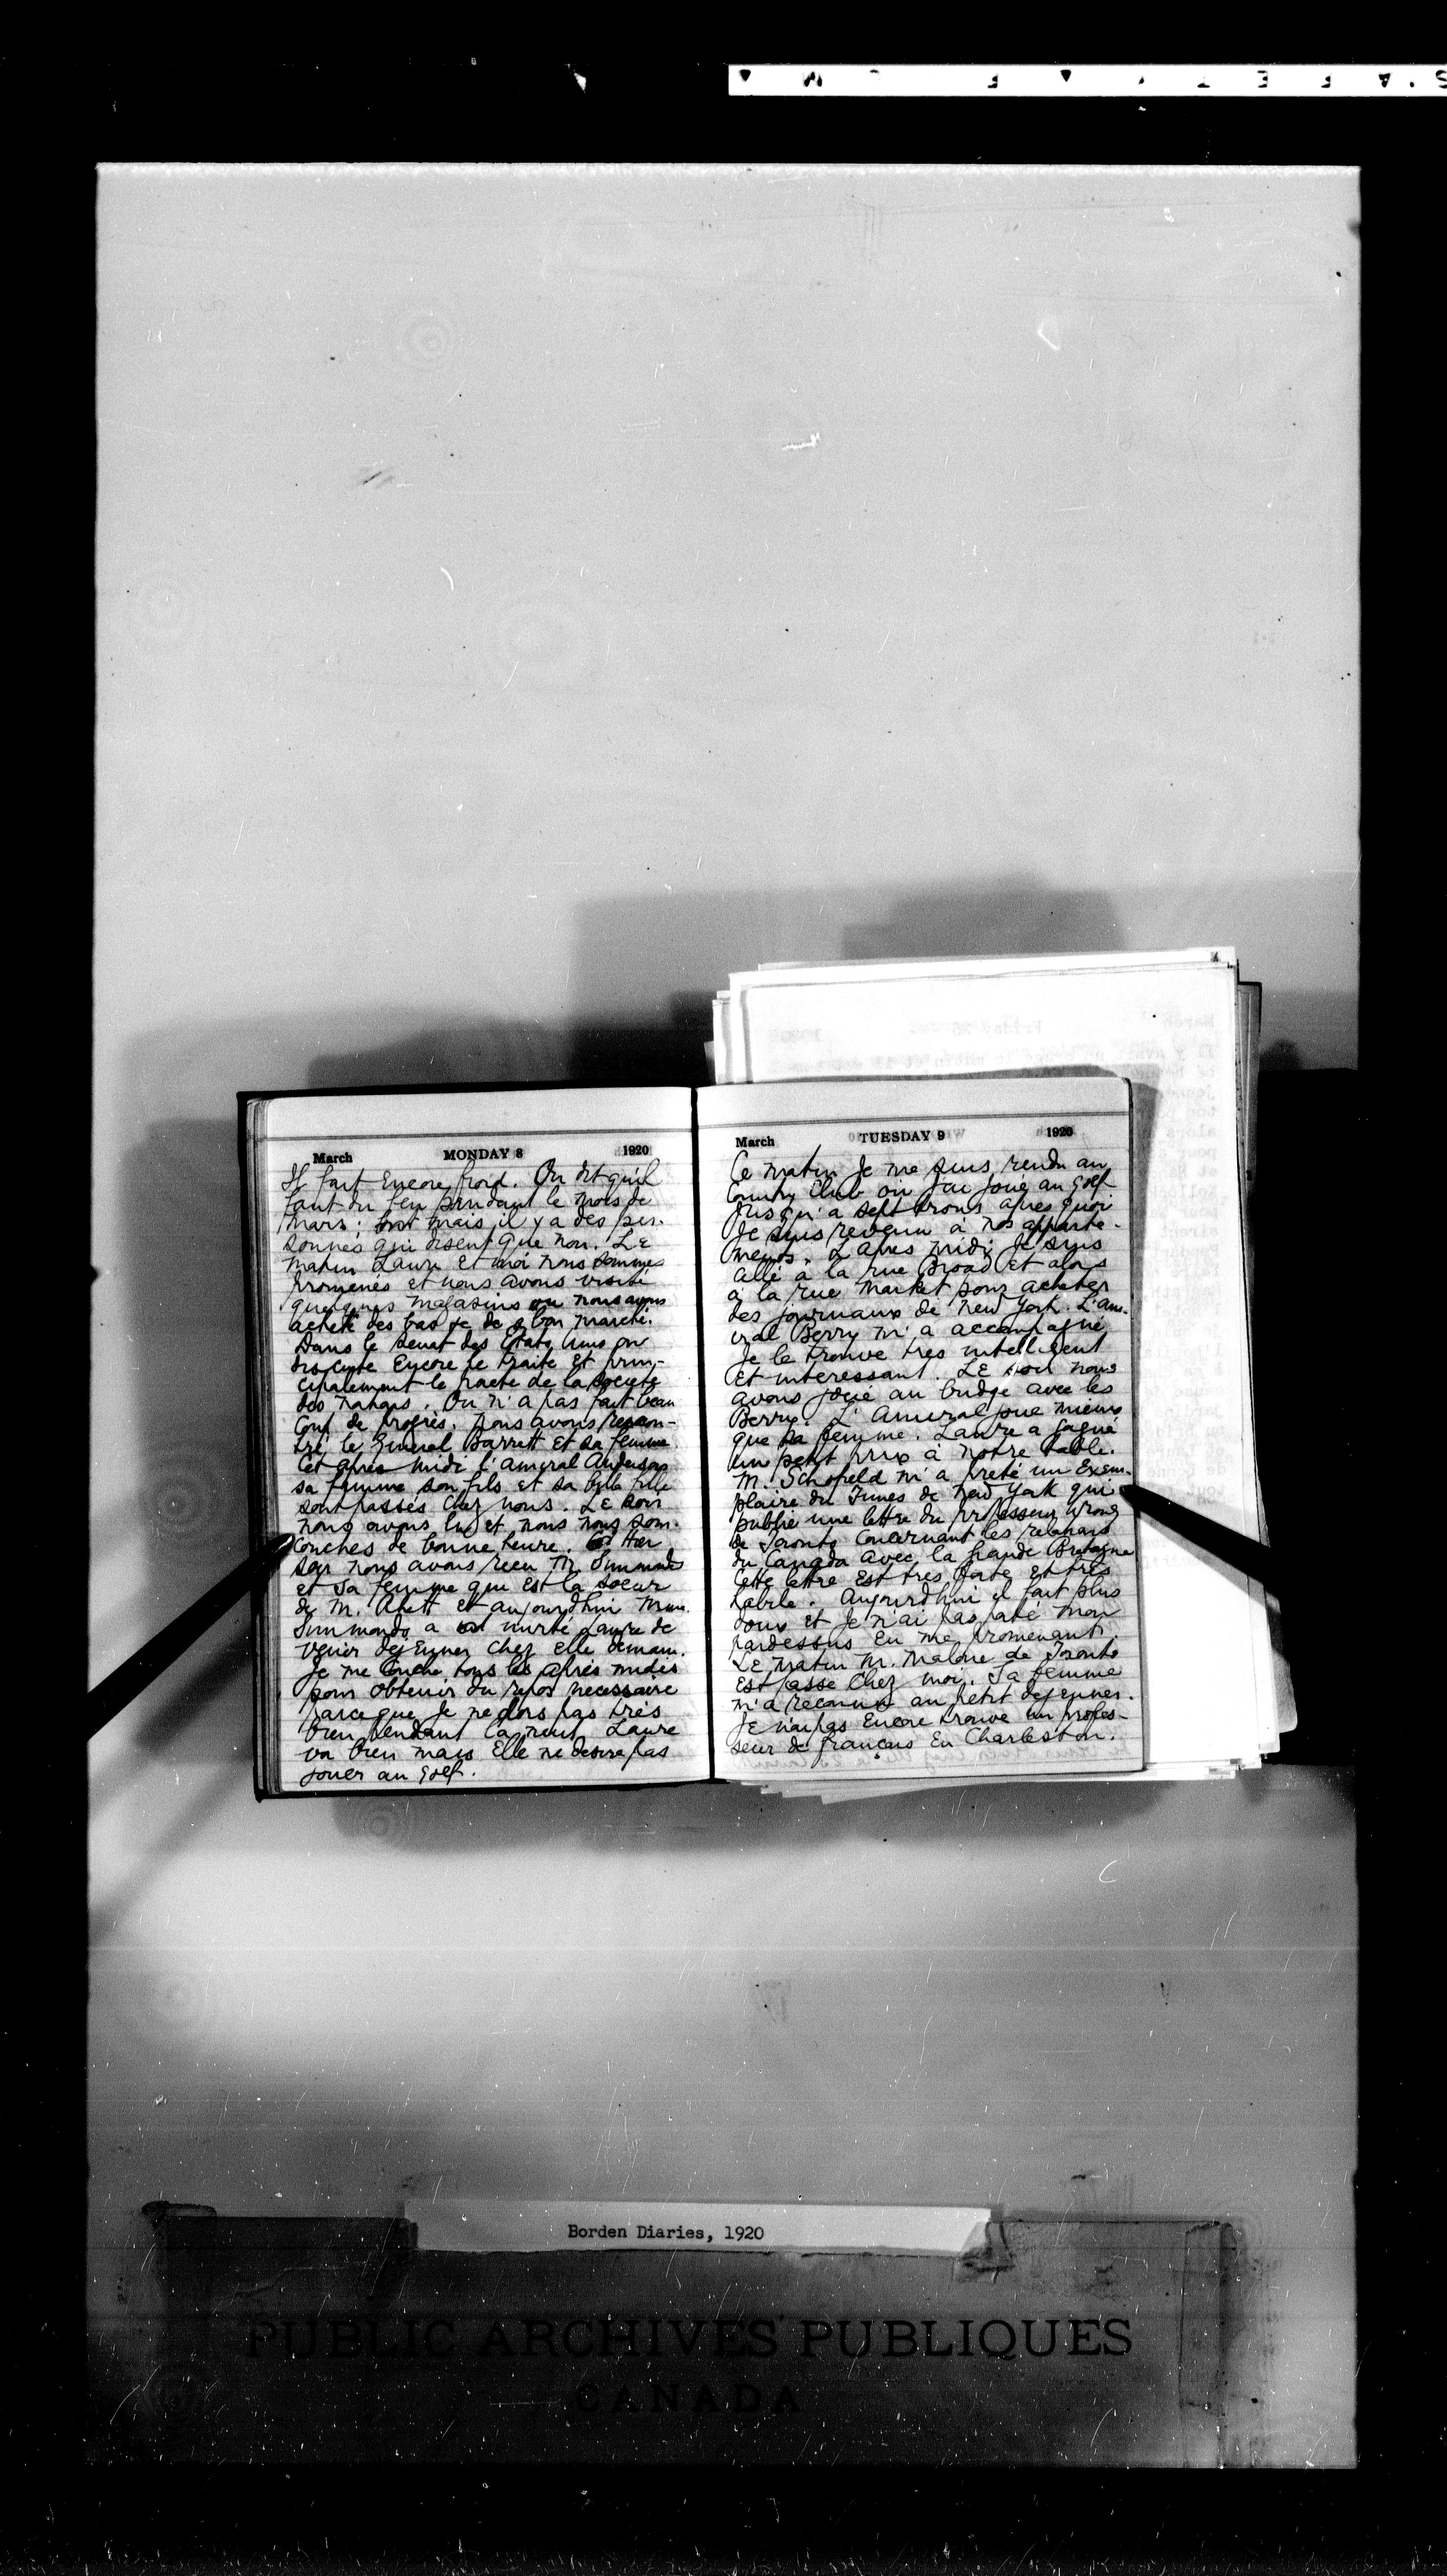 March MONDAY 8 1920
Il fait encore froid. On dit qu'il
faut du feu pendant le mois de
mars: mais il y a des per-
sonnes qui disent que non. Le
matin Laura et moi nous sommes
promenés et nous avons visité
quelques magasins ou nous avons
acheté des bas de bon marché.
Dans le Senat des Etats Unis on
discute encore le traite et prin-
cipalement le pacte de la societé
des nations. On n'a pas fait beau
coup de progrès. Nous avons rencon-
tré le General Barrett et sa femme.
Cet après midi l'amiral Anderson
sa femme son fils et sa belle fille
sont passés chez nous. Le soir
nous avons lu et nous nous som-
couches de bonne heure. Hier
soir nous avons recu M. Simmonds
et sa femme qui est la soeur
de M. et aujourdhui Mme.
Simmonds a invité Laura de
venir dejeuner chez elle demain.
Je me couche tous les après midis
pour obtenir du repos necessaire
parce que je ne dors pas très
bien pendant la nuit. Laura
va bien mais elle ne desire pas
jouer au golf.
March TUESDAY 9 1920
Ce matin je me suis rendu au
Country Club où j'ai joué au golf
jusqu'a sept trous apres quoi
je suis revenu à nos apparte-
ments. L'apres midi je suis
allé à la rue Broad et alors
à la rue Market pour acheter
des journaux de New York. L'am-
iral Berry m'a accompagné
Je le trouve tres intelligent
et interessant. Le soir nous
avons joué au bridge avec les
Berry. L'Amiral joue mieux
que sa femme. Laura a gagné
un petit prix à notre table.
M. Schofield m'a preté un exem-
plaire du Times de New York qui
publie une lettre du professeur Wrong
de Toronto concernant les relations
du Canada avec la Grande Bretagne
Cette lettre est tres forte et très
habile. Aujourdhui il fait plus
doux et je n'ai pas mon
pardessus en me promenant.
Le matin M. Malone de Toronto
est passé chez moi. Sa femme
m'a reconnu au petit dejeuner.
Je n'ai pas encore trouvé un profes-
seur de français en Charleston.
Borden Diaries, 1920
PUBLIC ARCHIVES PUBLIQUES
CANADA